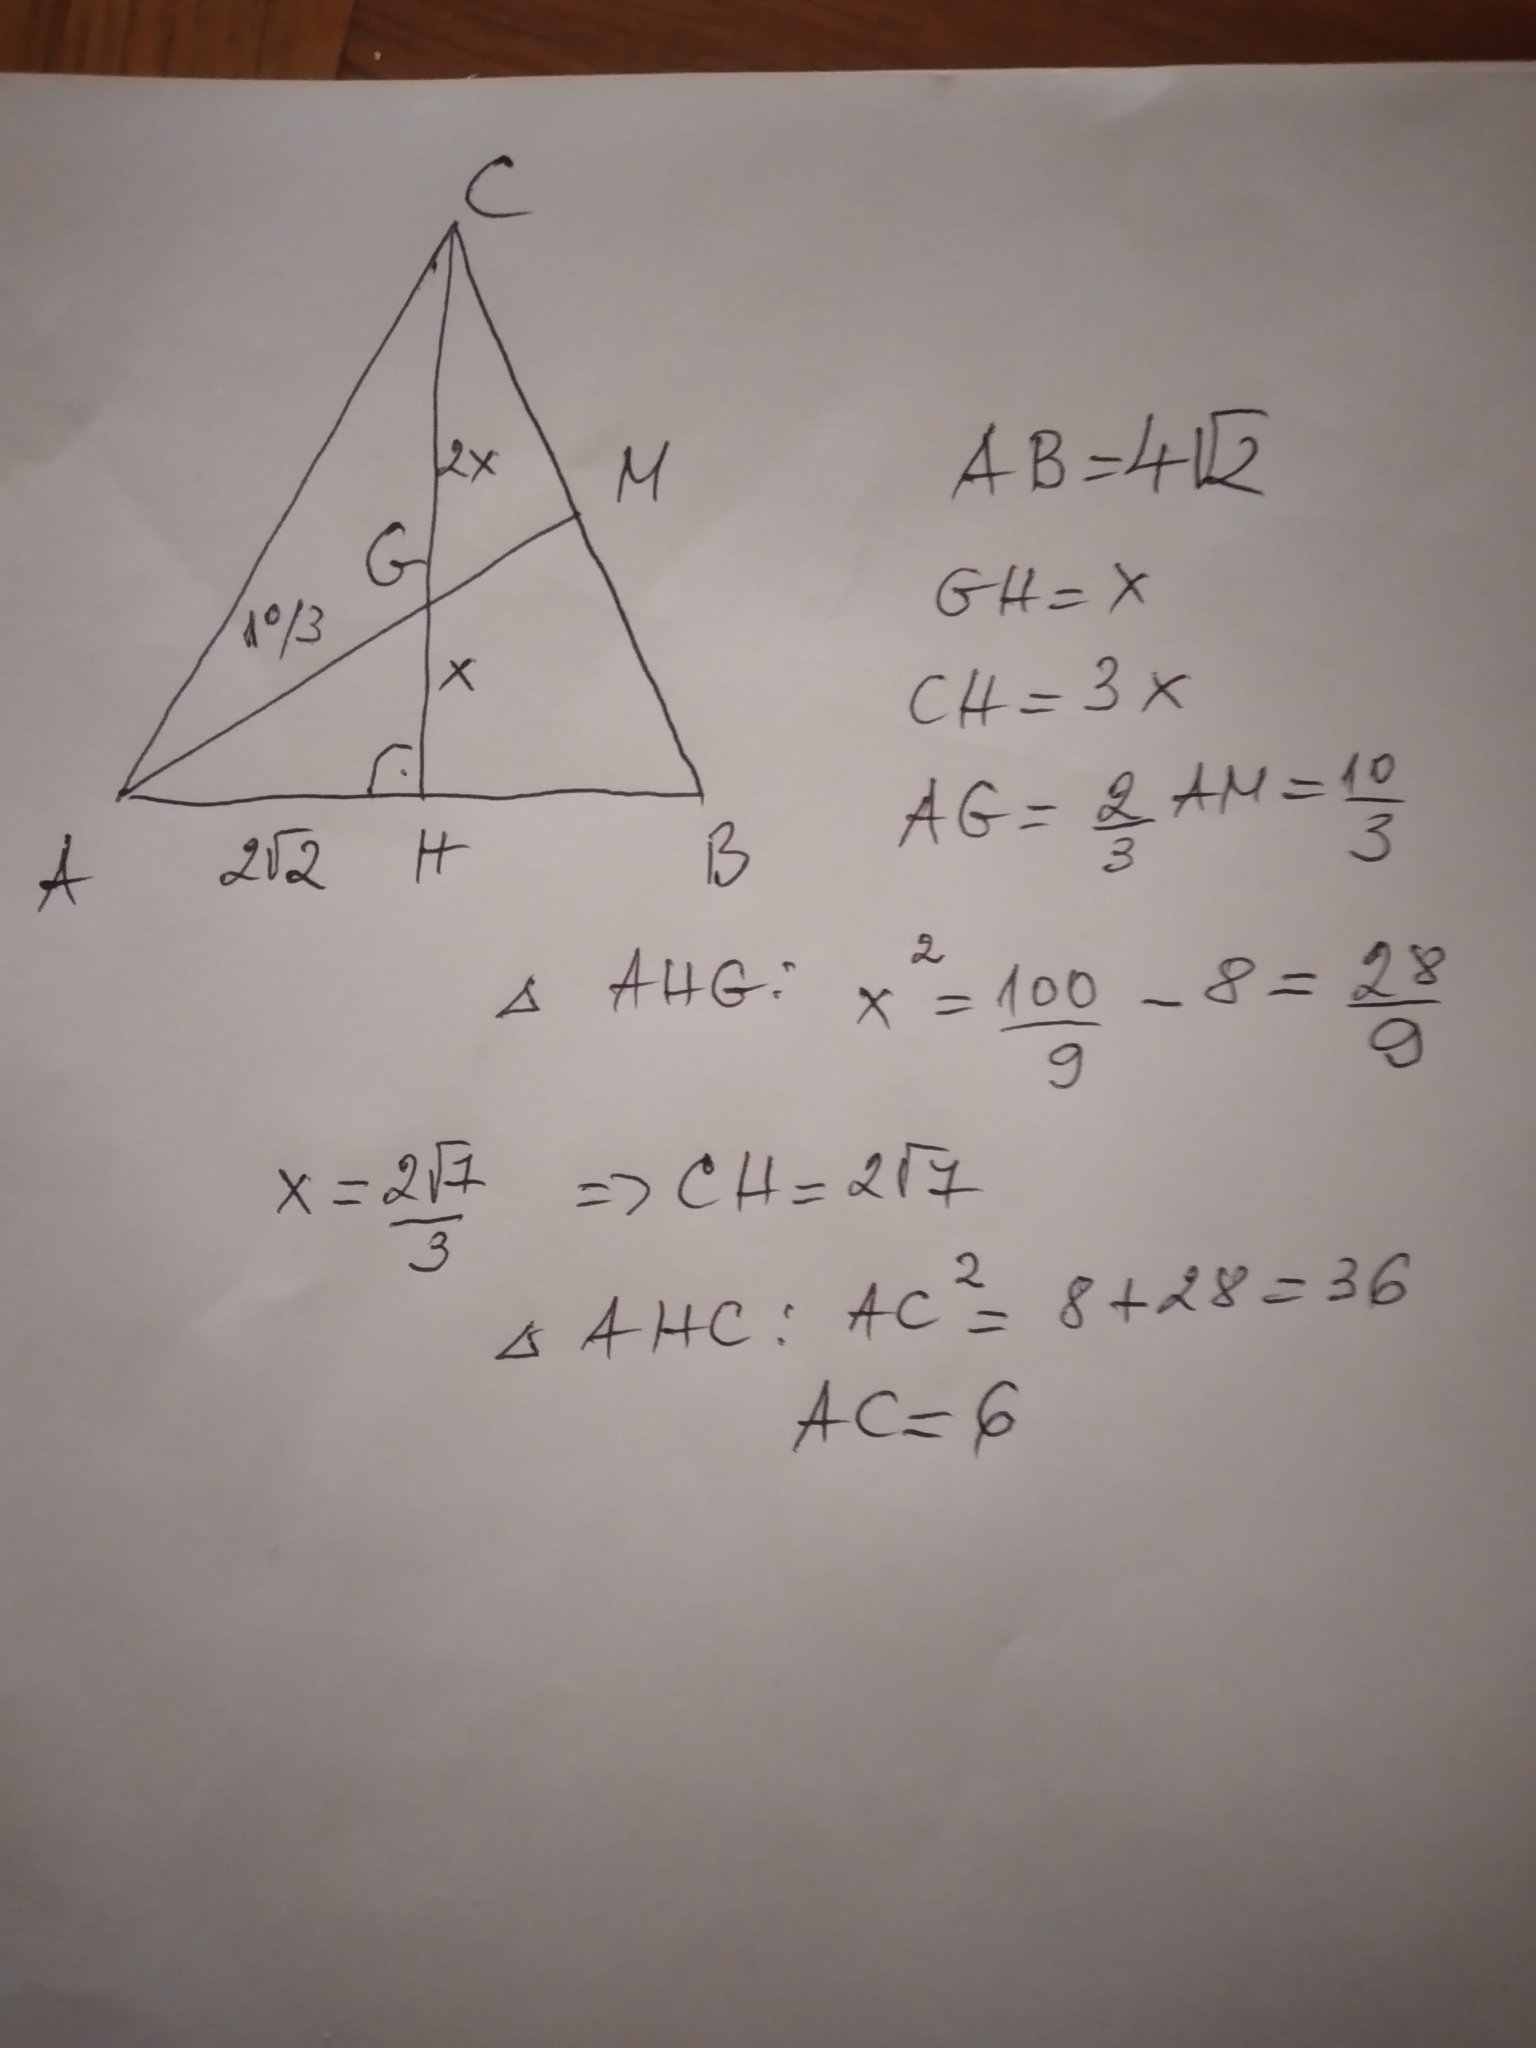 C
2x
M
G
10/3
x
A
2√2
H
B
AB=4√2
GH=x
CH=3x
AG=2/3 AM=10/3
△ AHG: x²=100/9-8=28/9
x=2√7/3 => CH=2√7
△ AHC: AC²=8+28=36
AC=6